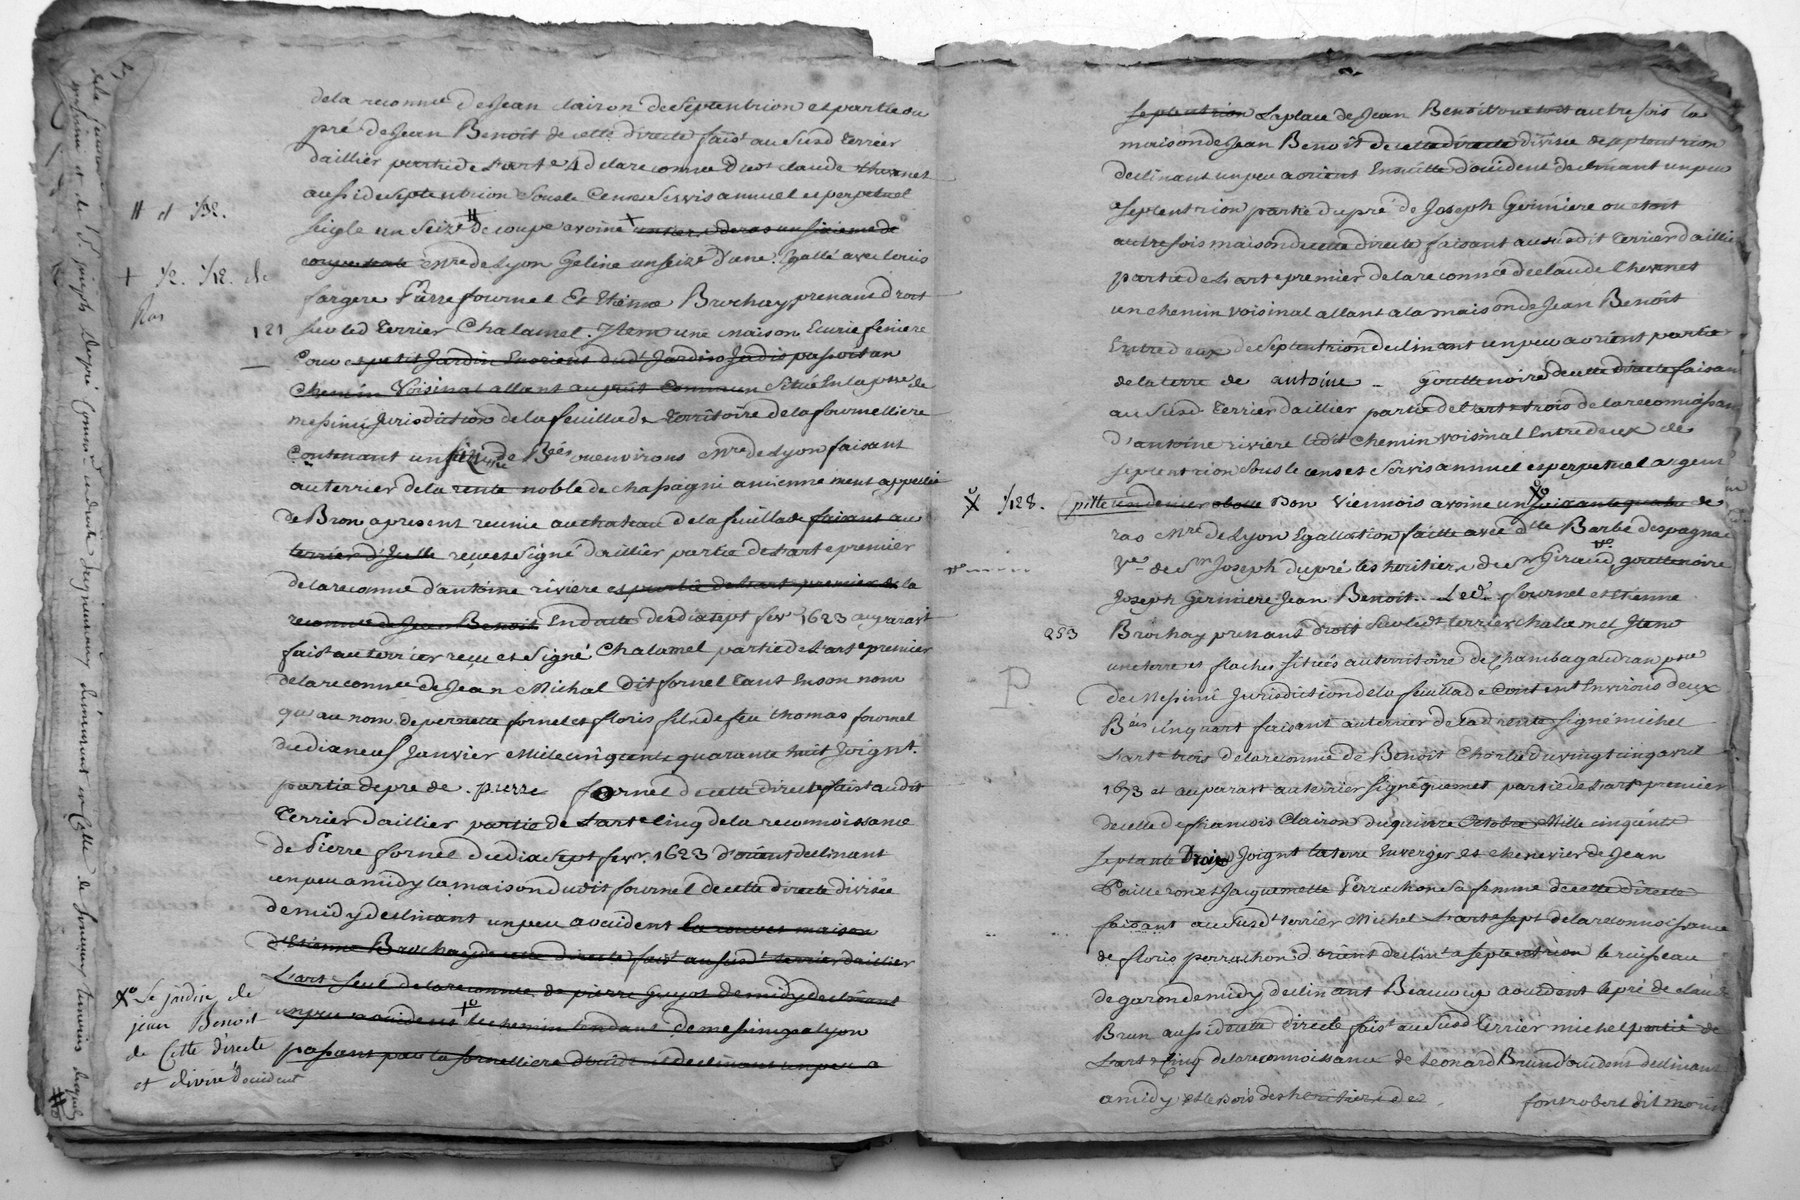 dela reconnce de Jean clairon de Septentrion et partie du
pré de Jean Benoît de cette directe fais.t au Susd Terrier
daillier partie de Lart.e 4 dela reconnce dud.t claude thevenet
aussi de Septentrion Sous le Cens et Servis annuel et perpetuel
# et 1/32.
seigle un Seize # de coupe avoine + un sixieme de
coupe rate mre de Lyon Geline un seize d'une. Egallé avec Louis
+ 1/2. 1/12. de
Ras
fargere Pierre fournel Et Etienne Brochay prenant droit
121
Seu led Terrier Chalamel. Item une maison Ecurie feniere
Cour et petit Jardin En orient dud.t Jardin Jadis passoit un
chemin Voisinal allant au puit Commun Situé En la psse de
messimi Jurisdiction de la feuillade Territoire de la fournelliere
Contenant un de Bées ou environs mre de Lyon faisant
au terrier de la rente noble de chassagni anciennement appellée
de Bron, apresent reunie au chateau de la feuillade faisant au
terrier d'Iulle reçu et Signé daillier partie de Lart.e premier
de la reconnce d'antoine riviere et partie de Lart premier de la
reconnce de Jean Benoit En datte du dix sept fevr 1623 auparavt
fais.t au terrier reçu et Signé Chalamel partie de Lart.e premier
de la reconnce de Jean Michal dit fornel Tant En son nom
qu'au nom de pernette fornel et floris fils de feu thomas fournel
du dix neuf Janvier Mille cinq cents quarante huit Joignt.
partie de pre de . pierre fournel de cette directe fais.t audit
Terrier daillier partie de Lart.e Cinq de la reconnoissance
de Pierre fornel du dix Sept fevr. 1623 d'orient declinant
un peu a midy la maison dudit fournel de cette directe divisée
de midy declinant un peu a occident la cour et maison
d'Etienne Brochay de cette directe fais.t au susd.t terrier daillier
L'art Seul de la reconnce de pierre Guyot de midy declinant
un peu a occident le chemin tendant de messimy a Lyon
passant par la fornelliere d'occident declinant un peu a
Le jardin de
jean Benoit
de Cette directe
et divisé d'occident
Septentrion La place de Jean Benoit ou etoit autrefois la
maison de Jean Benoît de cette directe divisée de septentrion
declinant un peu a orient Ensuitte d'occident declinant un peu
a Septentrion partie du pré de Joseph Geriniere ou etoit
autrefois maison de cette directe faisant au susdit Terrier daillier
partie de Lart.e premier de la reconnce de claude thevenet
un chemin voisinal allant a la maison de Jean Benoît
Entre deux de Septentrion declinant un peu a orient partie
de la terre de antoine - Gouttenoire de cette directe faisant
au Susd Terrier daillier partie de Lart.e trois de la reconnoissance
d'antoine riviere ledit Chemin voisinal Entre deux de
septentrion Sous le cens et Servis annuel et perpetuel argent
X 1/128.
pitte un denier obole Bon Viennois avoine un soixante quatre de
ras mre de Lyon Egallation faitte avec dlle Barbe despagnac
Ve de Sr Joseph dupré les heritiers de Mr Giraud gouttenoire
Joseph Geriniere Jean Benoit. Led. fournel et Etienne
253
Brochay prenant droit Seu led.t terrier Chalamel Item
une terre et flaches Situés au territoire de Chambagaudran psse
de Messimi Jurisdiction de la feuillade Content Environs deux
P.
Bées un quart faisant au terrier de la d.rente Signé michel
L'art.e trois de la reconnce de Benoît Chorle du vingt cinq avril
1673 et auparavt au terrier Signé quemet partie de Lart.e premier
de celle de francois Clairon du quinze Octobre Mille cinq cents
septante trois Joignt la terre En verger et chenevier de Jean
Pailleron et Jacquemette Perrachon Sa femme de cette directe
faisant au Susd.t terrier Michel L'art.e sept de la reconnoissance
de floris perrachon d'orient declin.t a septentrion le ruisseau
de garon de midy declinant Beaucoup a occident le pré de claude
Brun aussi de cette directe fais.t au Susd Terrier michel partie de
L'art.e Cinq de la reconnoissance de Leonard Brun d'occident declinant
a midy et le Bois des heritiers de fontrobert dit moirin